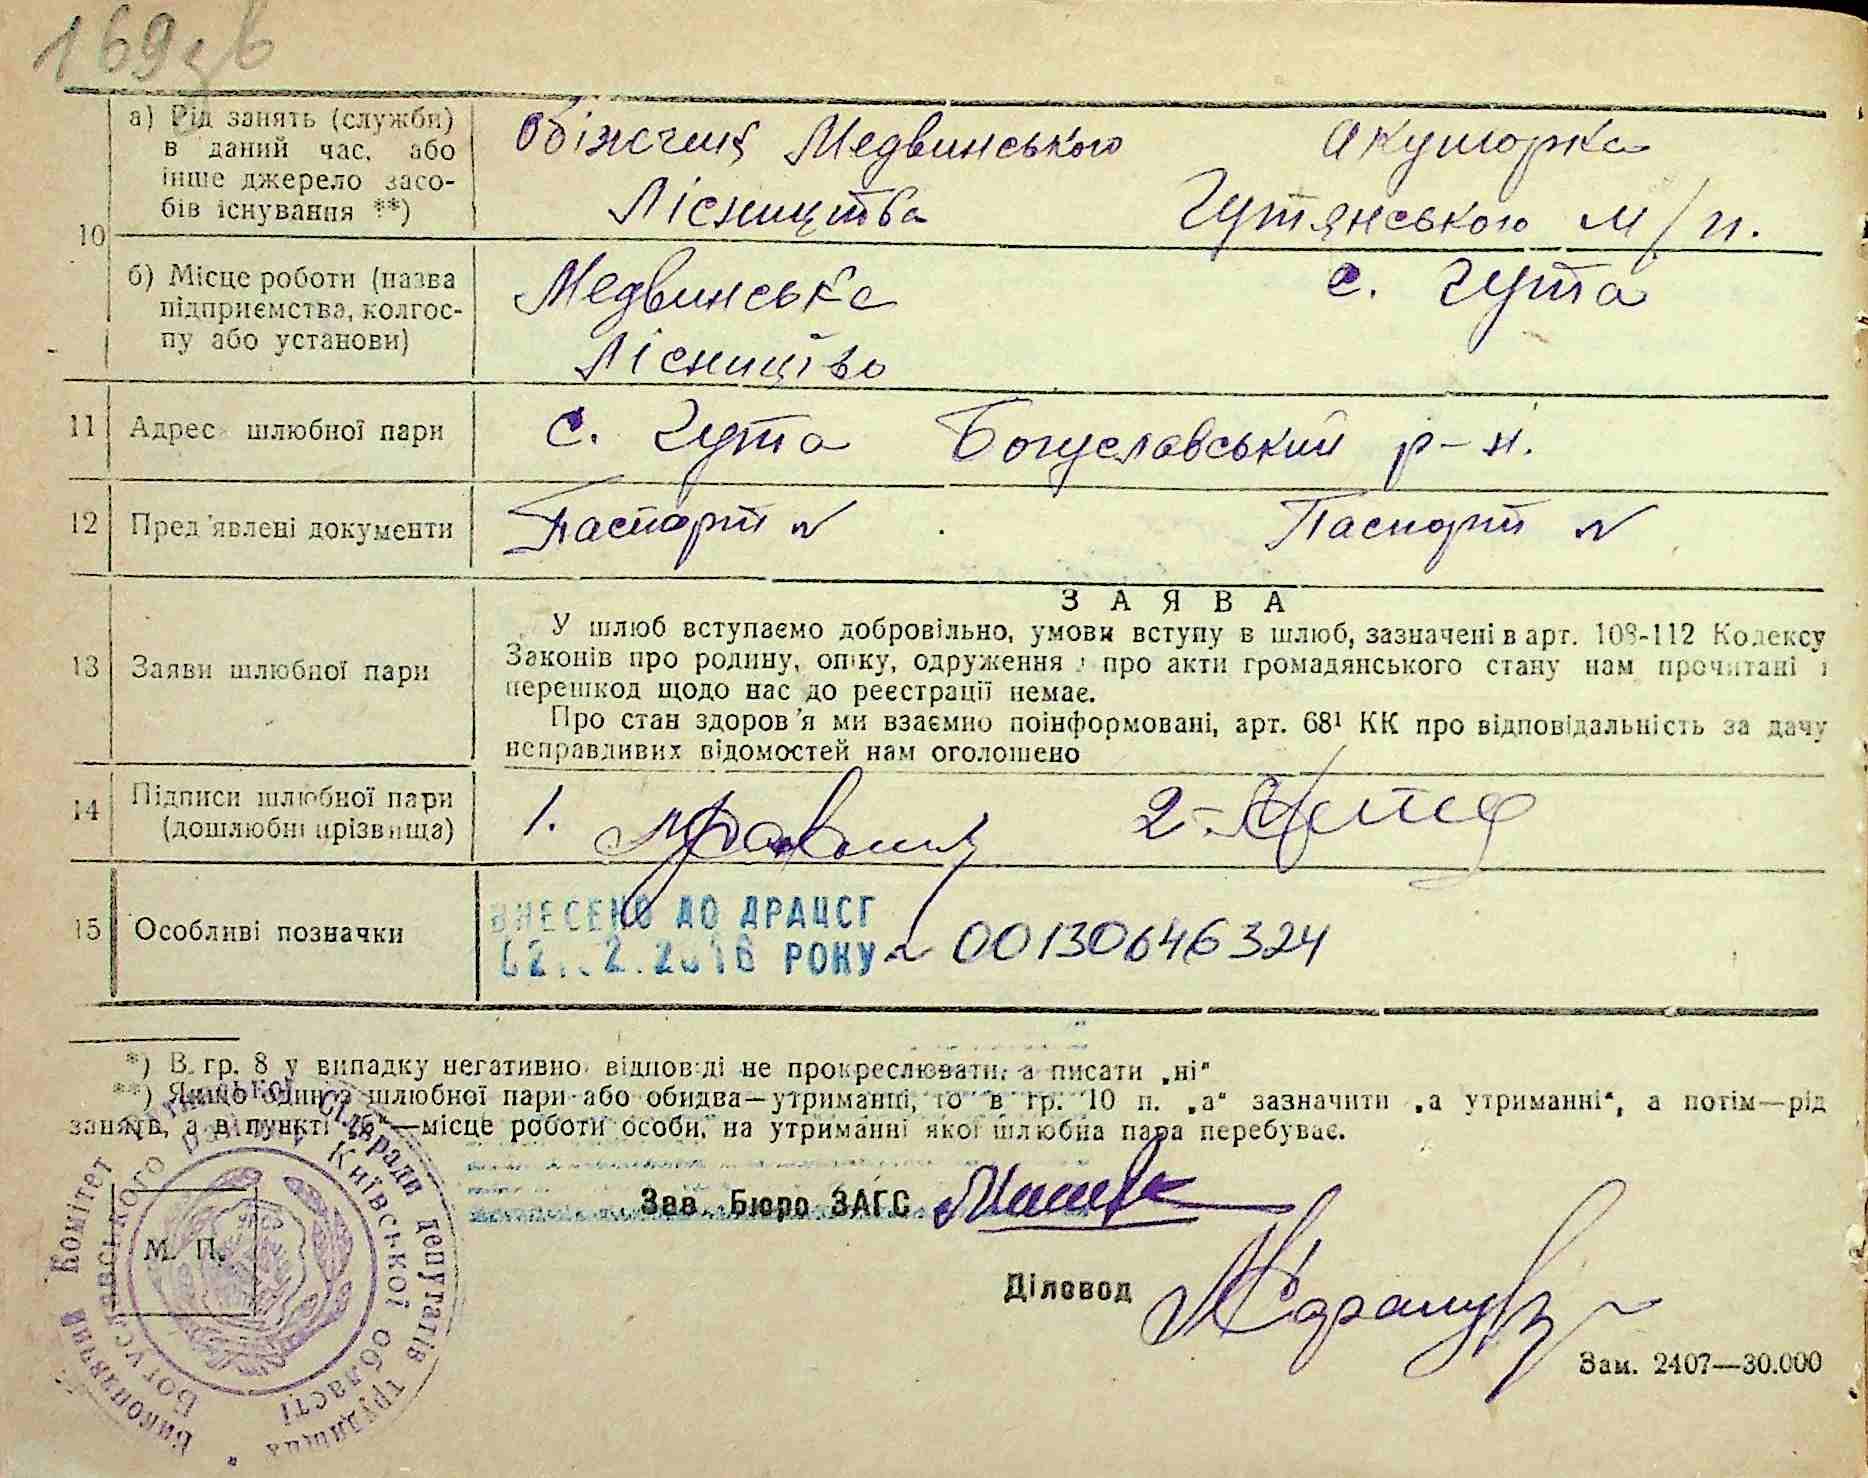 169зв
а) Рід занять (служби)
в даний час, або
інше джерело засо-
бів існування **)
Обіжчик Медвинського
Лісництва
Акушорка
Гутянського м/п.
10
б) Місце роботи (назва
підприємства, колгос-
пу або установи)
Медвинське
Лісництво
с. Гута
11 Адреса шлюбної пари
с. Гута Богуславський р-н.
12 Пред'явлені документи
Паспорт № Паспорт №
13 Заяви шлюбної пари
ЗАЯВА
У шлюб вступаємо добровільно, умови вступу в шлюб, зазначені в арт. 108-112 Кодексу
Законів про родину, опіку, одруження і про акти громадянського стану нам прочитані і
перешкод щодо нас до реєстрації немає.
Про стан здоров'я ми взаємно поінформовані, арт. 68¹ КК про відповідальність за дачу
неправдивих відомостей нам оголошено
14 Підписи шлюбної пари
(дошлюбні прізвища)
1. 2-
15 Особливі позначки
ВНЕСЕНО ДО ДРАЦСГ
РОКУ № 00130646324
*) В гр. 8 у випадку негативної відповіді не прокреслювати, а писати „ні"
**) Якщо один з шлюбної пари або обидва—утриманці, то в гр. 10 п. „а" зазначити „а утриманні", а потім—рід
занять, а в пункті „б"—місце роботи особи, на утриманні якої шлюбна пара перебуває.
Зав. Бюро ЗАГС
М. П.
Діловод
Виконавчий Комітет сільради депутатів трудящих
Богуславського району Київської області
Зам. 2407—30.000